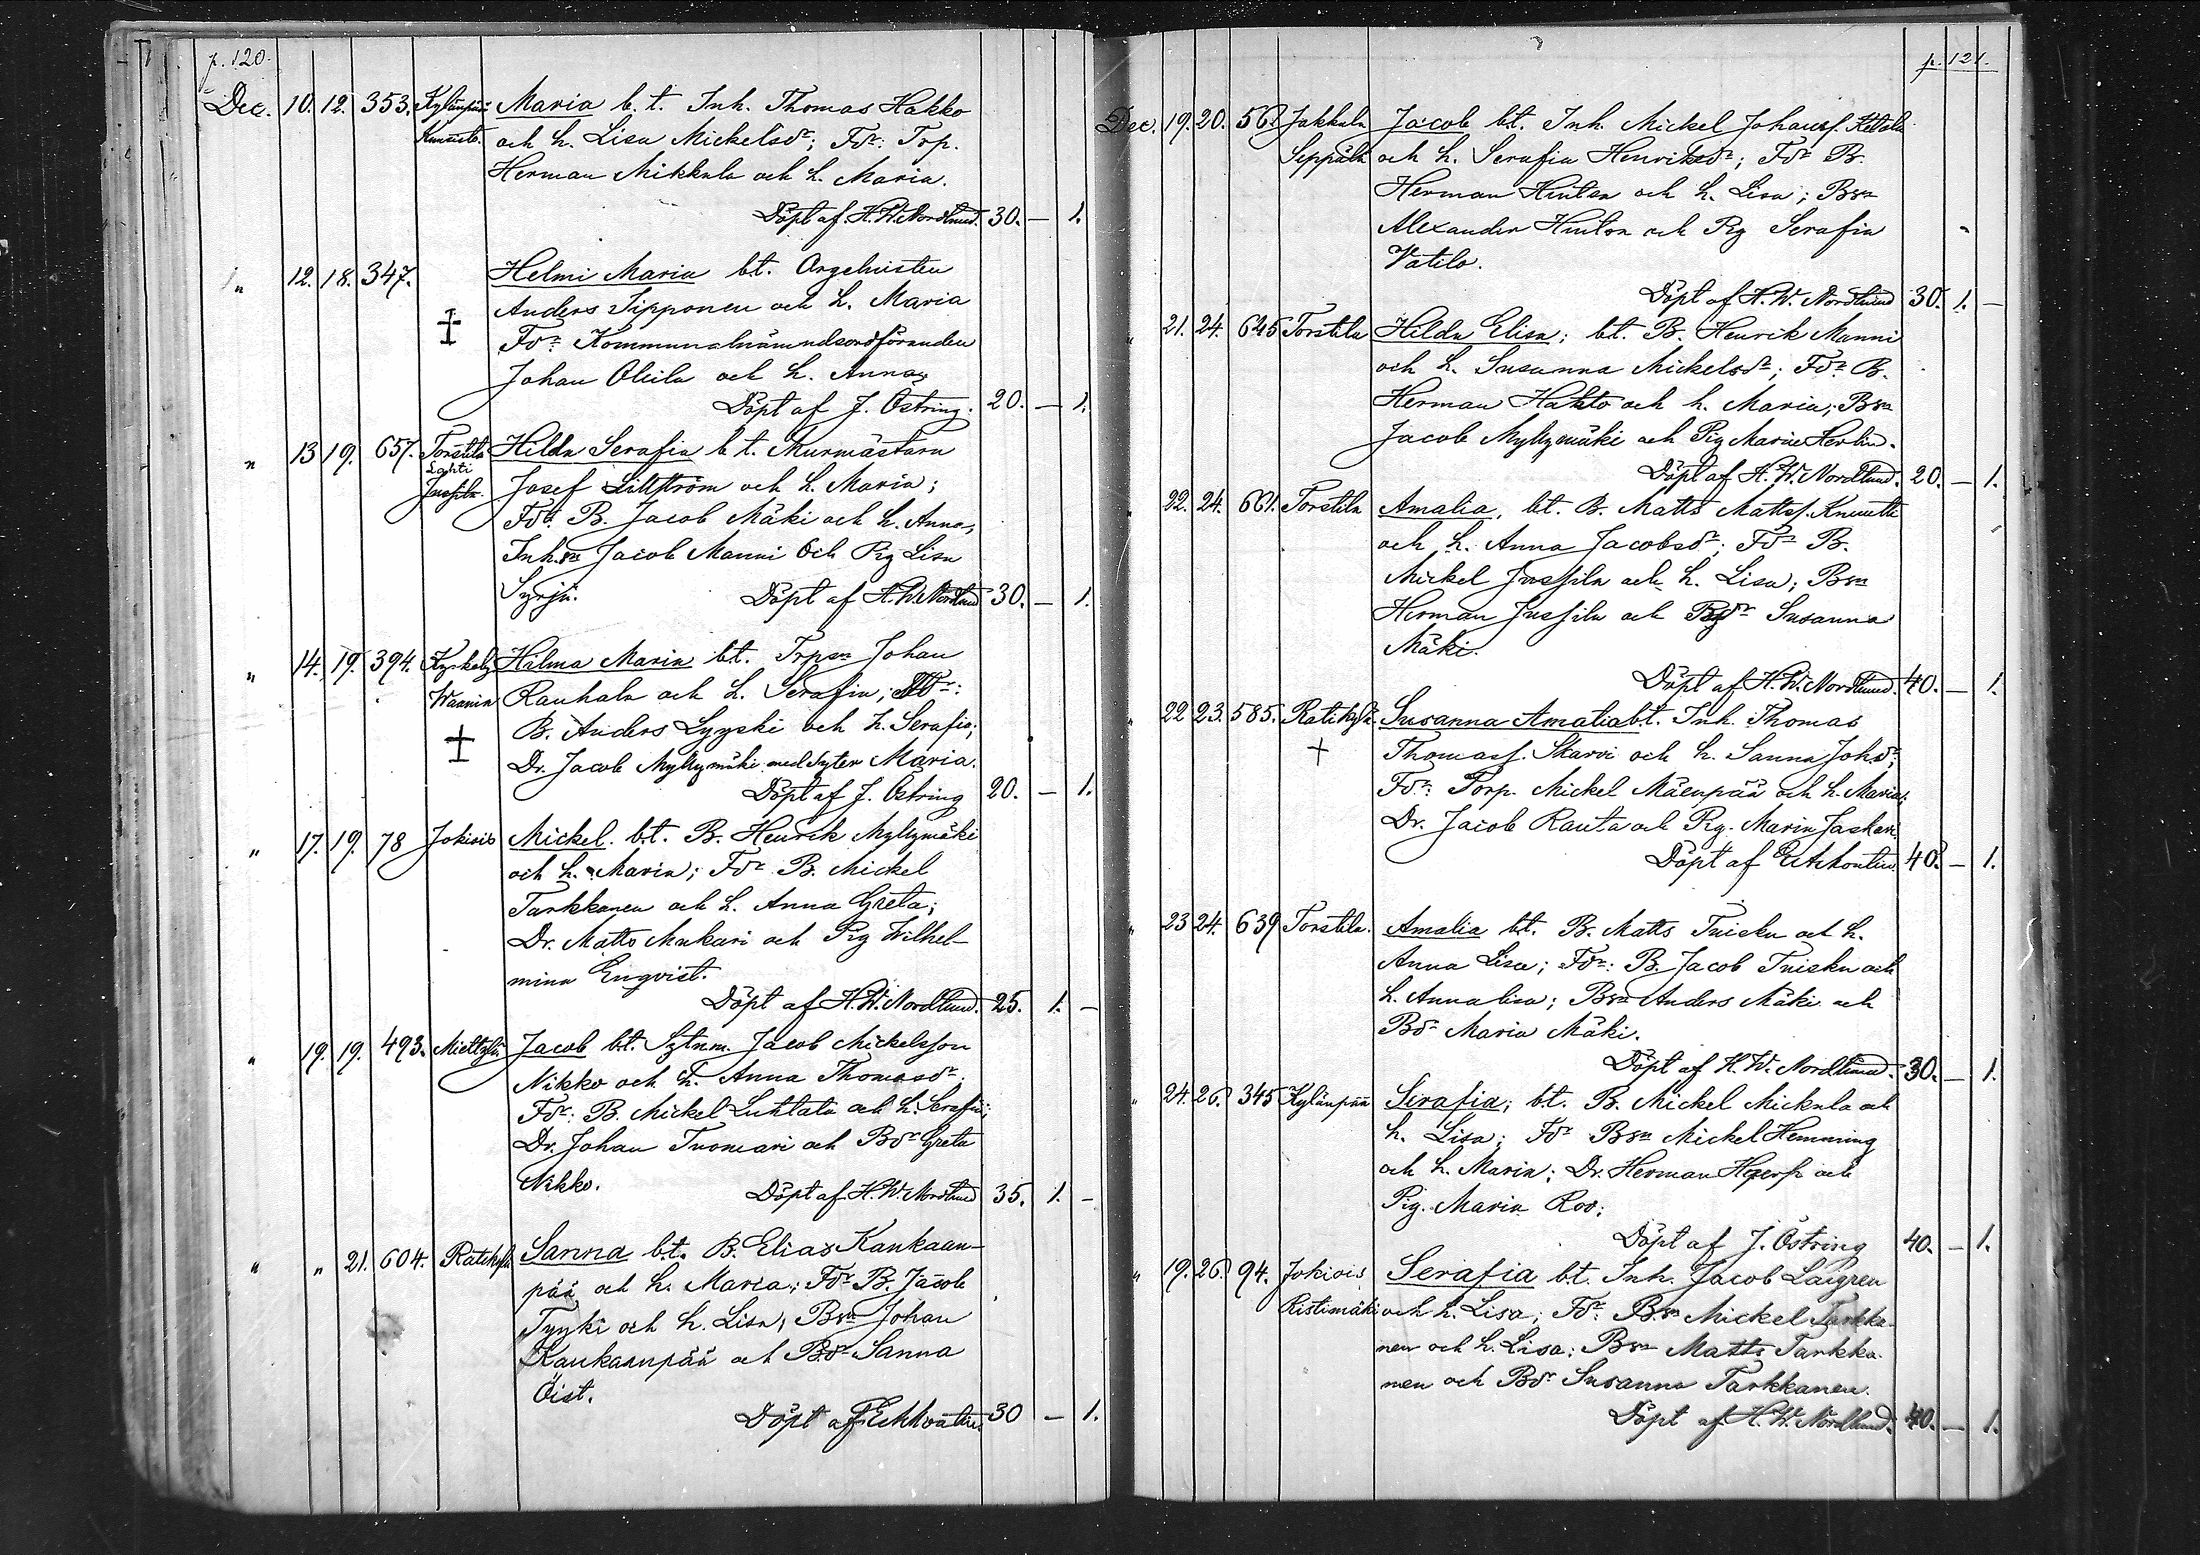 p. 120.
Dec. 10. 12. 353. Kylänpää Maria b. t. Inh. Thomas Hakko
och h. Lisa Mickelsdr; Fdr: Torp.
Herman Mikkula och h. Maria.
Döpt af H. W. Nordlund. 30. — 1.
" 12. 18. 347. Helmi Maria bt. Orgelnisten
Anders Sipponen och h. Maria
Fdr: Kommunalnämndsordföranden
Johan Ollila och h. Anna
Döpt af J. Östring. 20. — 1.
" 13 19. 657. Torstila Hilda Serafia bt. Murmästarn
Lahti
Jussila. Josef Lillström och h. Maria;
Fdr: B. Jacob Mäki och h. Anna,
Inh.sn Jacob Manni och Pig Lisa
Syrjä. Döpt af H. W. Nordlund 30. — 1.
" 14. 19. 394. Hilma Maria bt. Trpsn Johan
Rauhala och h. Serafia; Fdr:
B. Anders Lyyski och h. Serafia;
Dr. Jacob Myllymäki med syter Maria.
Döpt af J. Östring 20. — 1.
" 17. 19. 78 Jokiois Mickel. bt. B. Henrik Myllymäki
och h. Maria; Fdr B. Mickel
Tarkkanen och h. Anna Greta;
Dr. Matts Mukari och Pig Wilhel-
mina Enqvist.
Döpt af H. W. Nordlund. 25. 1. —
" 19. 19. 493. Miettylä Jacob bt. Sytnm. Jacob Mickelsson
Nikko och h. Anna Thomasdr.
Fdr: B. Mickel Luhtala och h. Serafia;
Dr. Johan Tuomari och Bdr Greta
Nikko. Döpt af H. W. Nordlund 35. 1. —
" " 21. 604. Ratikylä Sanna bt. B. Elias Kankaan-
pää och h. Maria; Fdr B. Jacob
Tyyki och h. Lisa; Bsn Johan
Kankaanpää och Bdr Sanna
Öist.
Döpt af 30 — 1.
p. 121.
Dec. 19. 20. 561 Jakkula Jacob bt. Inh. Mickel Johansf. Ketola
Seppälä och h. Serafia Henriksdr; Fdr B.
Herman Hintsa och h. Lisa; Bsn
Alexander Hintsa och Pig Serafia
Vatilo.
Döpt af H. W. Nordlund 30. 1. —
" 21. 24. 645 Torstila Hilda Elisa; bt. B. Henrik Manni
och h. Susanna Mickelsdr; Fdr. B.
Herman Hakto och h. Maria; Bsn
Jacob Myllymäki och Pig Maria Herlin.
Döpt af H. W. Nordlund. 20. — 1.
" 22. 24. 661. Torstila Amalia, bt. B. Matts Mattsf. Knuutti
och h. Anna Jacobsdr; Fdr B.
Mickel Jussila och h. Lisa; Bsn
Herman Jussila och Bdr Susanna
Mäki.
Döpt af H. W. Nordlund. 40. — 1.
" 22 23. 585. Ratikylä Susanna Amalia bt. Inh. Thomas
Thomasf. Skarvi och h. Sanna Johdr;
Fdr: Torp. Mickel Mäenpää och h. Maria;
Dr. Jacob Rauta och Pig. Maria Jaskari
Döpt af 40. — 1.
" 23 24. 639 Torstila. Amalia bt. B. Matts Tuisku och h.
Anna Lisa; Fdr: B. Jacob Tuisku och
h. Annalisa; Bsn Anders Mäki och
Bdr Maria Mäki.
Döpt af H. W. Nordlund. 30. — 1.
" 24. 26. 345 Kylänpää Serafia; bt. B. Mickel Mickula och
h. Lisa; Fdr Bsn Mickel Hemming
och h. Maria; Dr. Herman och
Pig. Maria Roo;
Döpt af J. Östring 40. — 1.
" 19. 26. 94. Jokiois Serafia bt. Inh. Jacob Laigren
Ristimäki och h. Lisa; Fdr. Bsn Mickel Tarkka-
nen och h. Lisa; Bsn Matts Tarkka-
nen och Bdr Susanna Tarkkanen.
Döpt af H. W. Nordlund. 40. — 1.